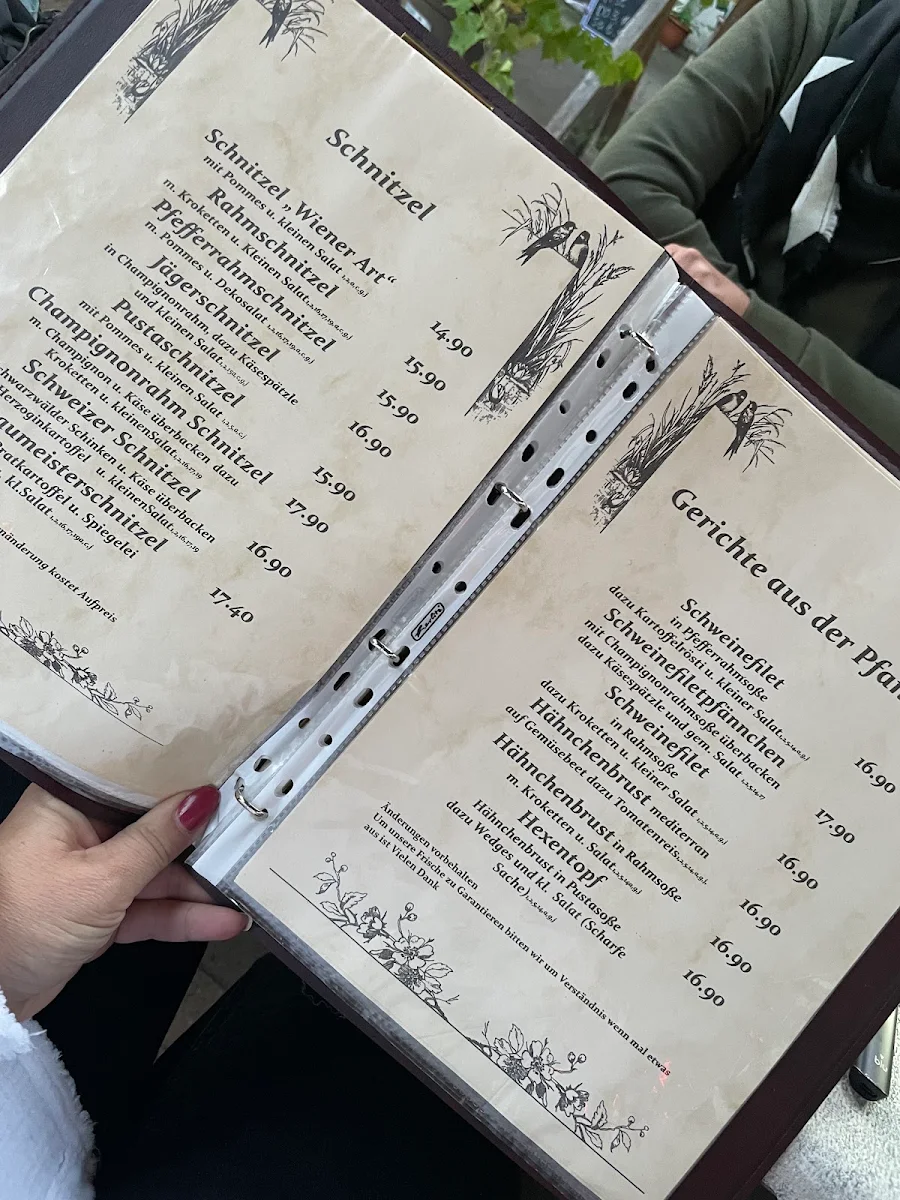 Schnitzel
Schnitzel „ Wiener Art“
mit Pommes u. kleinen Salat
14.90
Rahmschnitzel
m. Kroketten u. Kleinen Salat
15.90
Pfefferrahmschnitzel
m. Pommes u. Dekosalat
15.90
Jägerschnitzel
in Champignonralim, dazu Käsespätzle
und kleinen Salat
16.90
Pustaschnitzel
mit Pommes u. kleinen Salat
15.90
Champignonrahm Schnitzel
m. Champignon u. Käse überbacken dazu
Kroketten u. kleinenSalat
17.90
Schweizer Schnitzel
Schinken u. Käse überbacken
Herzoginkartoffel u. kleinenSalat
16.90
u. Spiegelei
kl.Salat
17.40
kostet Aufpreis
Gerichte aus der
Schweinefilet
in Pfefferrahmsoße
dazu Kartoffelrösti u. kleiner Salat
16.90
Schweinefiletpfännchen
mit Champignonrahmsoße überbacken
dazu Käsespätzle und gem. Salat
17.90
Schweinefilet
in Rahmsoße
dazu Kroketten u. kleiner Salat
16.90
Hähnchenbrust mediterran
auf Gemüsebeet dazu Tomatenreis
16.90
Hähnchenbrust in Rahmsoße
m. Kroketten u. Salat
16.90
Hexentopf
Hähnchenbrust in Pustasoße
dazu Wedges und kl. Salat (Scharfe
Sache)
16.90
Änderungen vorbehalten
Um unsere Frische zu Garantieren bitten wir um Verständnis wenn mal etwas
aus ist Vielen Dank